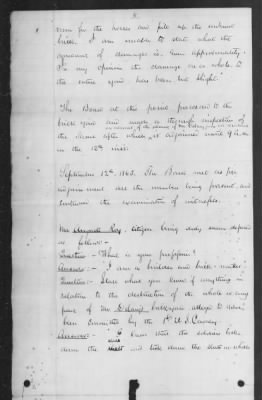 room for the horses and pile up the unburnt
brick. I am unable to state what the
amount of damages is. Even approximately.
In my opinion the damage as a whole to
the entire yard has been but slight.
The Board at this point proceeded to the
brick yard and made a thorough inspection of
the same after which it adjourned
in the 12th inst.
September 12th 1865. The Board met as per
adjournment all the members being present, and
continued the examination of witnesses.
Mr. Ray, citizen being duly sworn deposed
as follows:-
Question:- What is your profession?
Answer:- I am a builder and brick maker.
Question:- State what you know if anything in
relation to the destruction of the whole or any
part of Mr. brickyard alleged to have
been committed by the 1st U.S. Cavalry.
Answer:- I know that the soldiers
down the and took down the